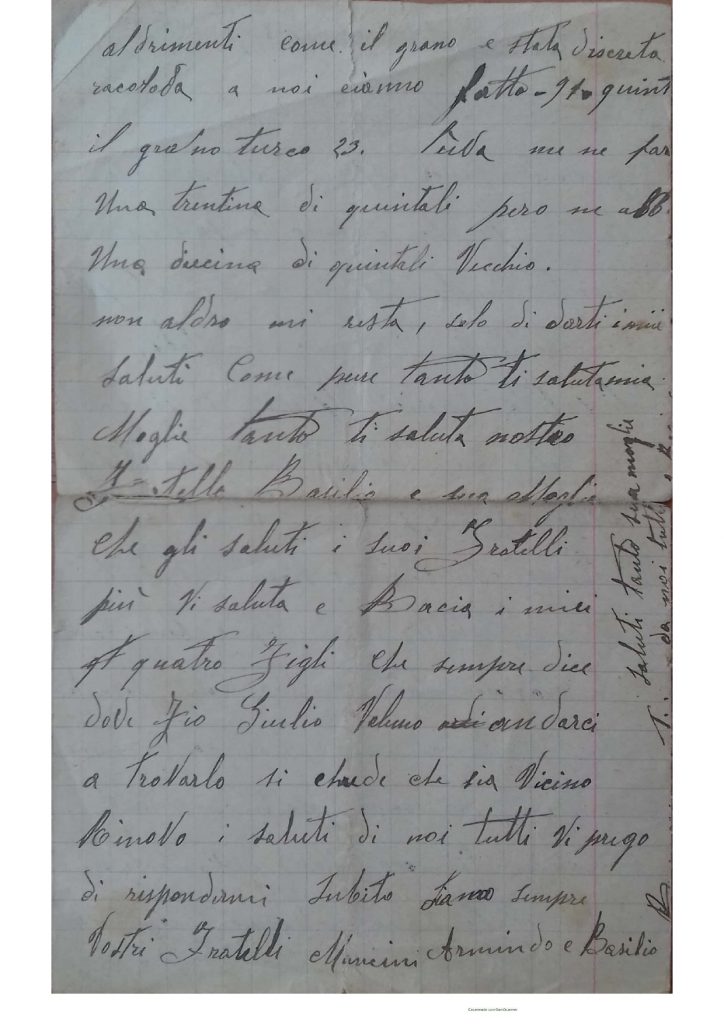 aldrimenti come il grano e stata discreta
racolda a noi cianno fatto - 91 quint
il grano turco 23. l'uva me ne par
Una trentina di quintali pero ne abb
Una diecina di quintali Vecchio.
non aldro mi resta, solo di darti i miii
saluti Come pure tanto ti saluta mia
Moglie tanto ti saluta nostro
Fratello Basilio e sua Moglie
che gli saluti i suoi Fratelli
più Vi saluta e Bacia i miei
quatro Figli che sempre dice
dove Zio Giulio Volemo andarci
a trovarlo si chrede che sia Vicino
Rinovo i saluti di noi tutti Vi prego
di rispondermi subito siamo sempre
Vostri Fratelli Mancini Armindo e Basilio
saluti tanto sua moglie
da noi tutti
Cancerizzato con CamScanner